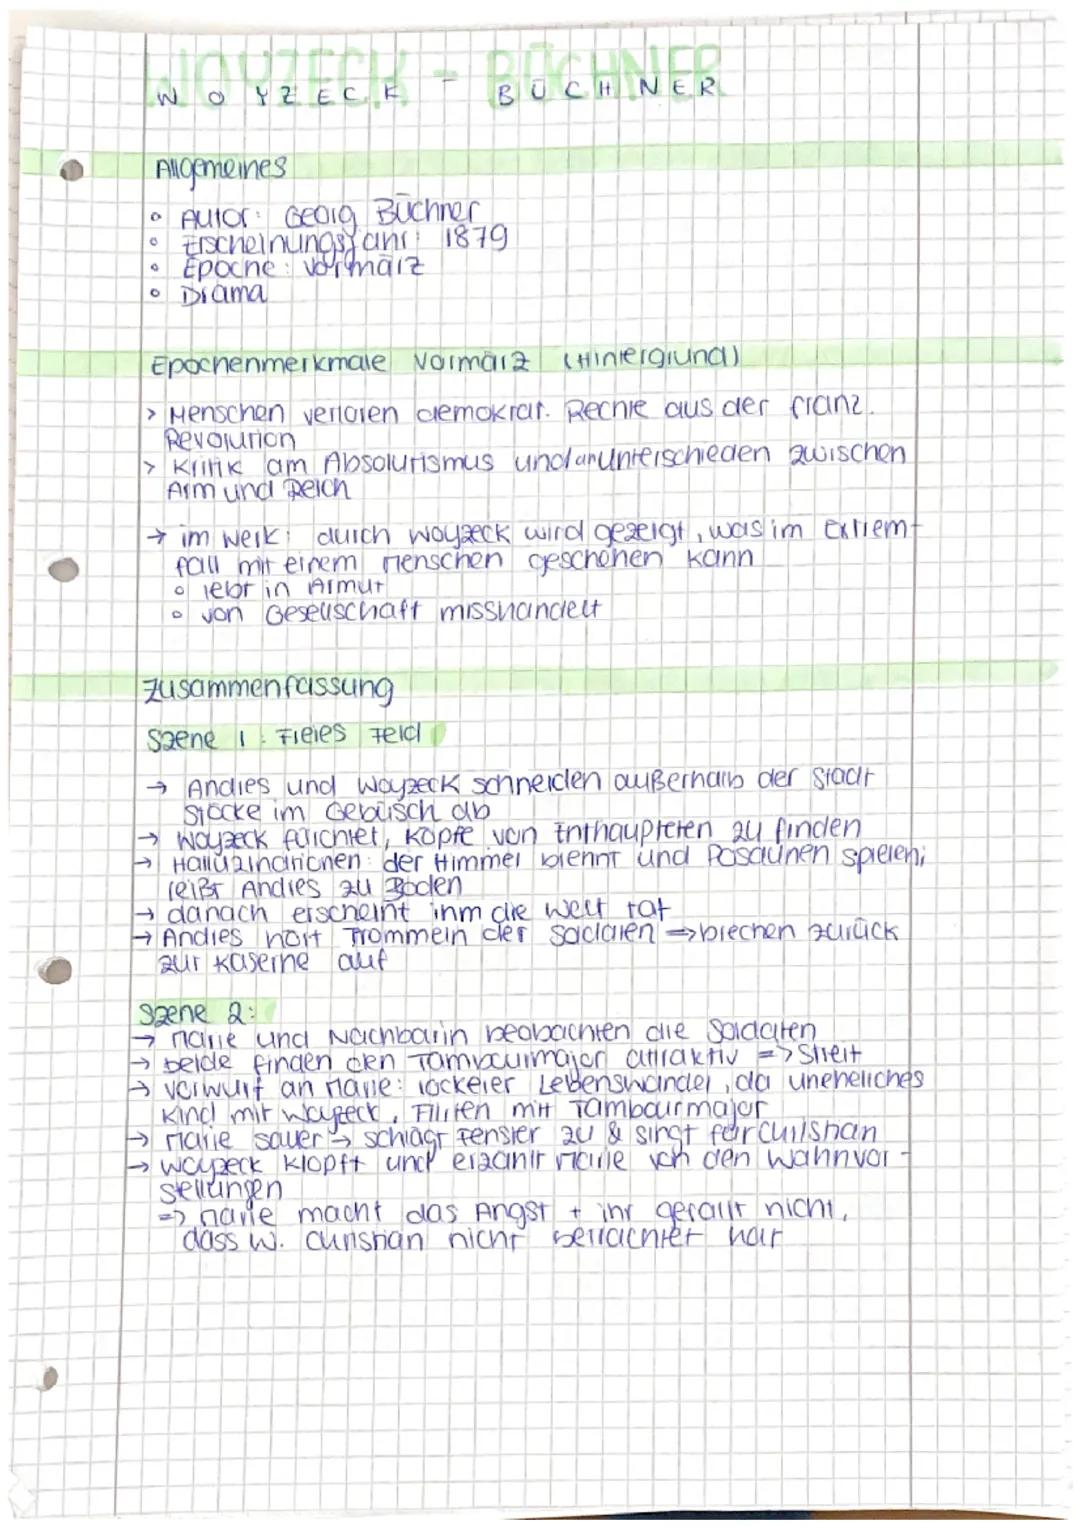 WOYZECK - BÜCHNER
Allgemeines
◦ Autor: Georg Büchner
◦ Erscheinungsjahr: 1879
◦ Epoche: Vormärz
◦ Drama
Epochenmerkmale Vormärz (Hintergrund)
> Menschen verloren demokrat. Rechte aus der franz.
Revolution
> Kritik am Absolutismus und an Unterschieden zwischen
Arm und Reich
→ im Werk: durch Woyzeck wird gezeigt, was im Extrem-
fall mit einem Menschen geschehen kann
◦ lebt in Armut
◦ von Gesellschaft misshandelt
Zusammenfassung
Szene 1: Freies Feld
→ Andres und Woyzeck schneiden außerhalb der Stadt
Stöcke im Gebüsch ab
→ Woyzeck fürchtet, Köpfe von Enthaupteten zu finden
→ Halluzinationen: der Himmel brennt und Posaunen spielen;
reißt Andres zu Boden
→ danach erscheint ihm die Welt tot
→ Andres hört Trommeln der Soldaten ⇒ brechen zurück
zur Kaserne auf
Szene 2:
→ Marie und Nachbarin beobachten die Soldaten
→ beide finden den Tambourmajor attraktiv => Streit
→ Vorwurf an Marie: lockerer Lebenswandel, da uneheliches
Kind mit Woyzeck, Flirten mit Tambourmajor
→ Marie sauer → schlägt Fenster zu & singt für Christian
→ Woyzeck klopft und erzählt Marie von den Wahnvor-
stellungen
=> Marie macht das Angst + ihr gefällt nicht,
dass W. Christian nicht betrachtet hat